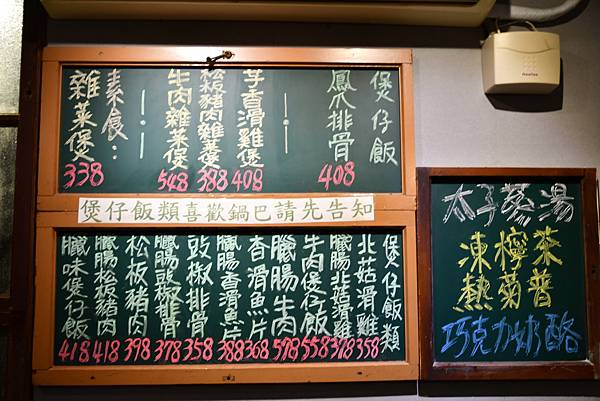 煲仔飯
鳳爪排骨 408
芋香滑雞煲 408
松板豬肉雜菜煲 388
牛肉雜菜煲 548
素食：
雜菜煲 338
煲仔飯類喜歡鍋巴請先告知
煲仔飯類
北菇滑雞 358
臘腸北菇滑雞 378
牛肉煲仔飯 558
臘腸牛肉 578
香滑魚片 368
臘腸香滑魚片 388
豉椒排骨 358
臘腸豉椒排骨 378
松板豬肉 398
臘腸松板豬肉 418
臘味煲仔飯 418
太子蔘湯
凍檸茶
熱菊普
巧克力奶酪